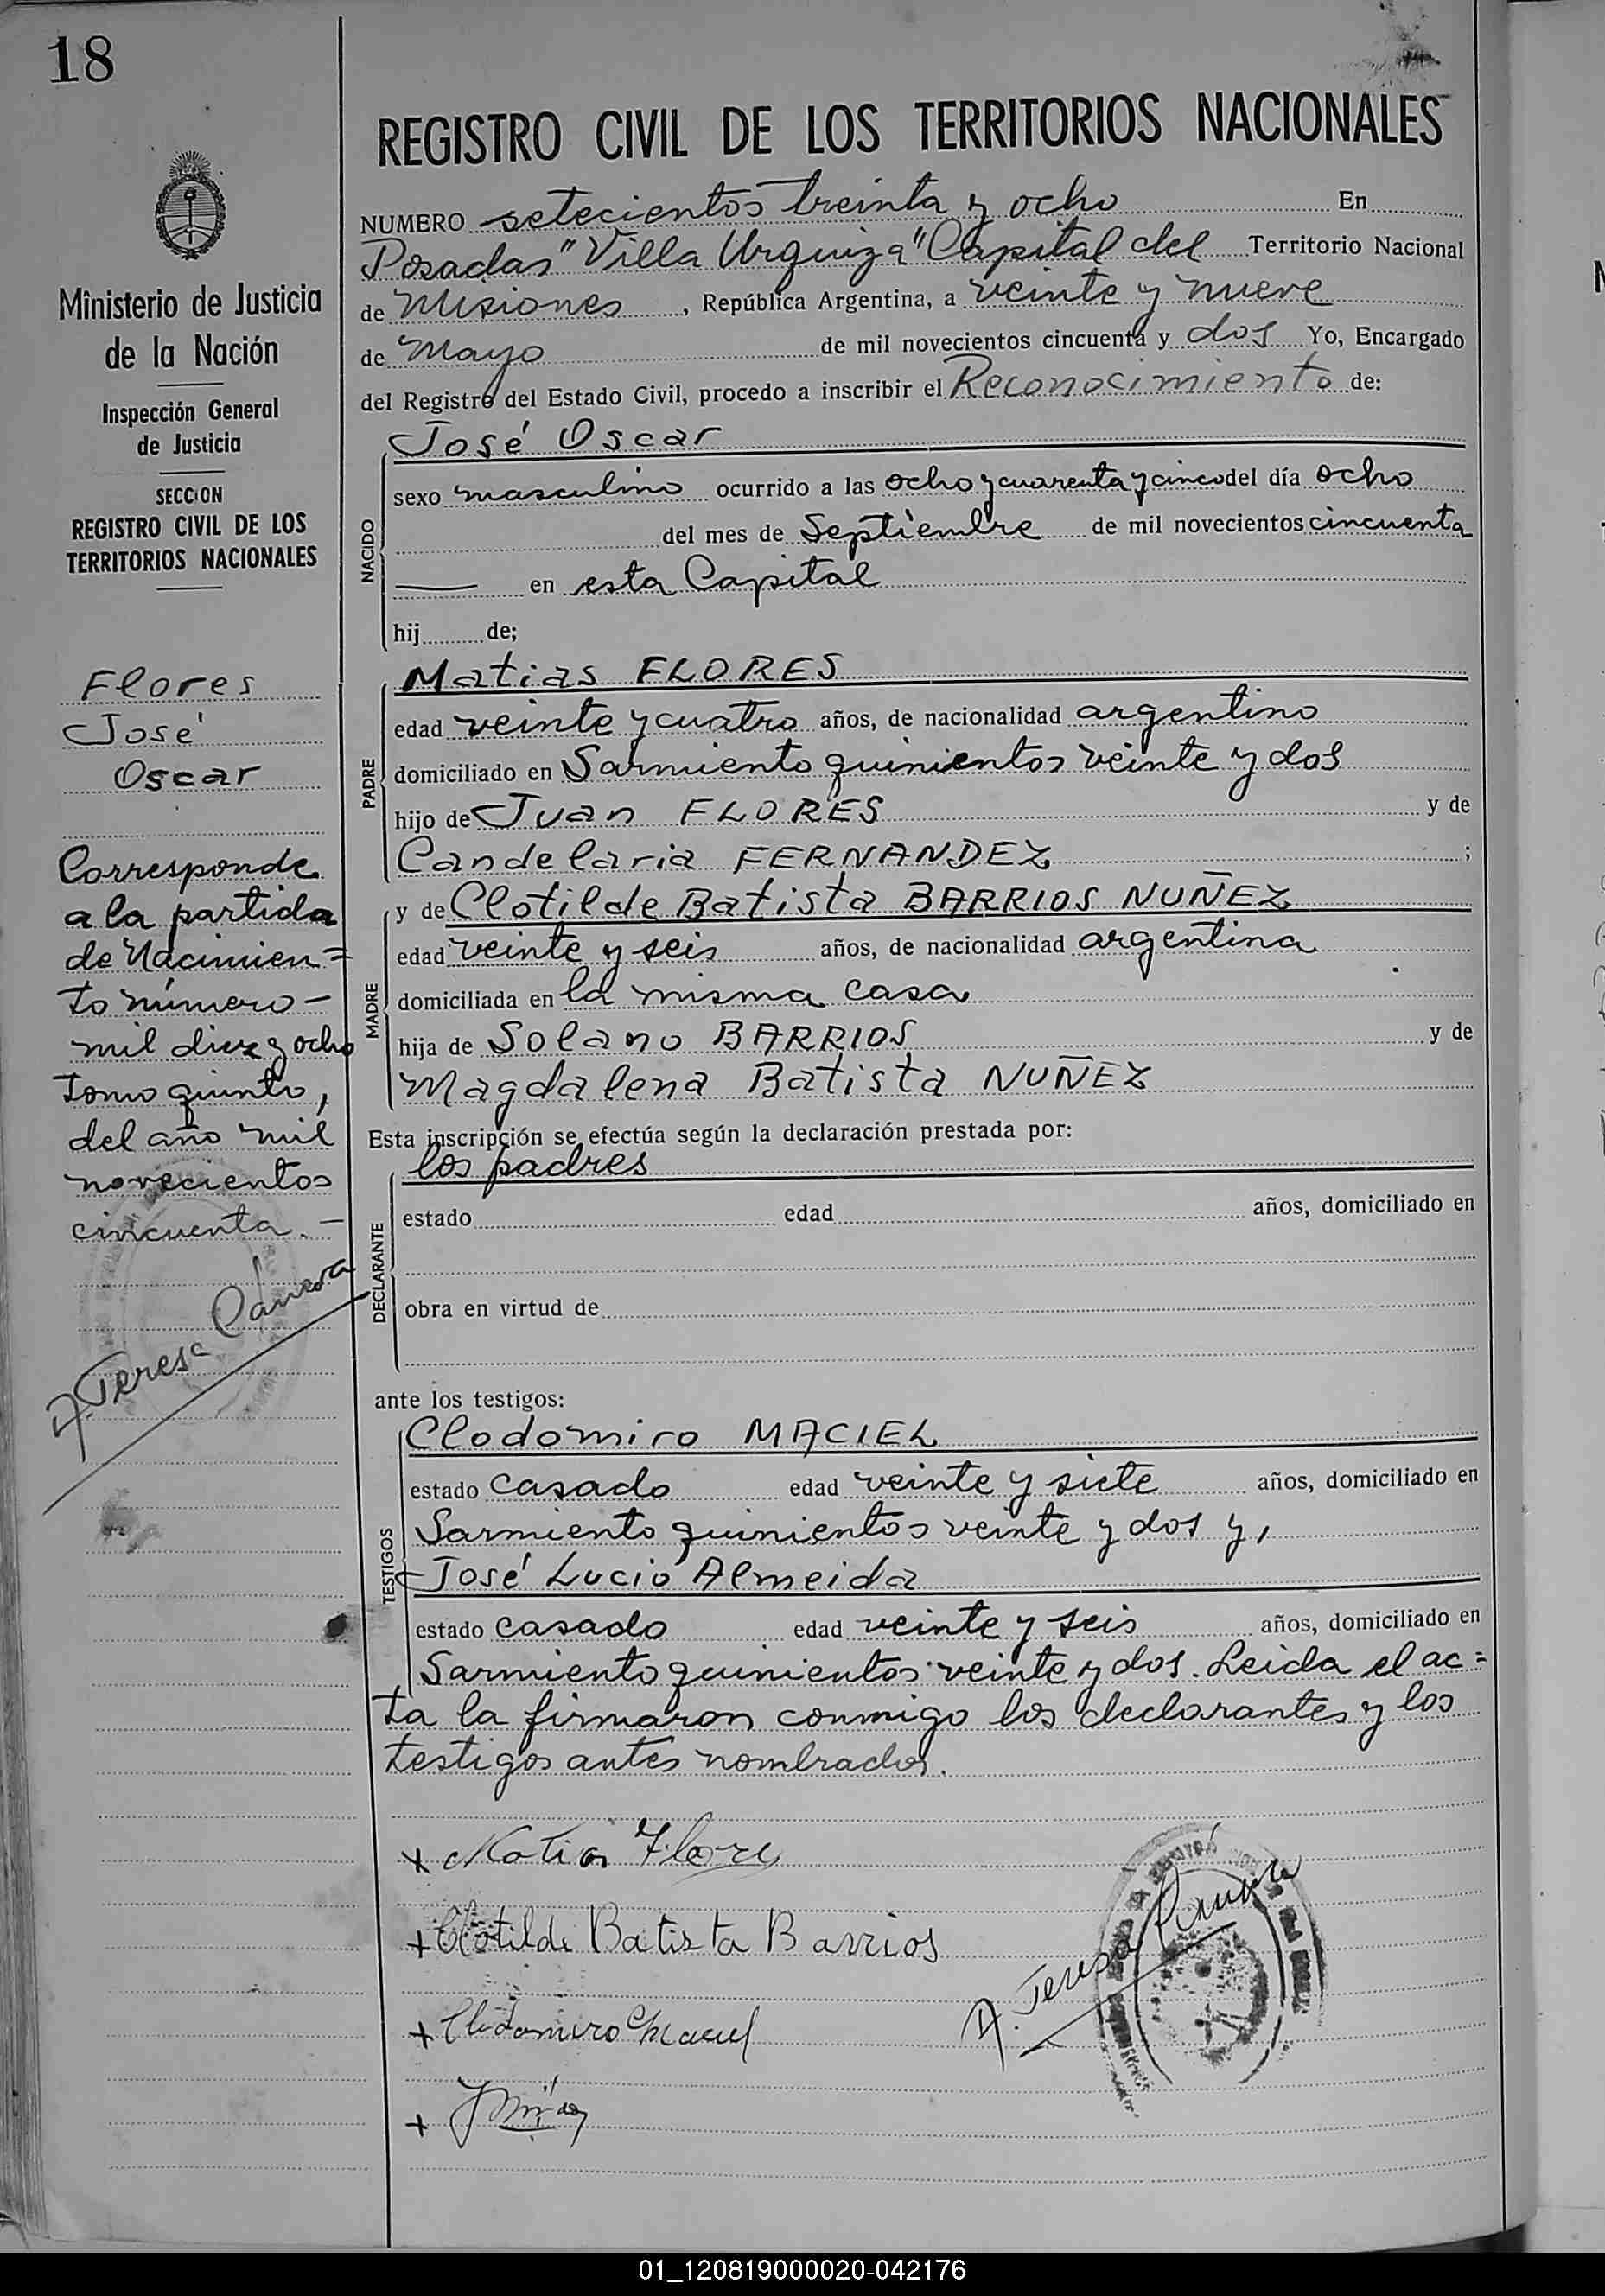 18
Ministerio de Justicia
de la Nación
Inspección General
de Justicia
SECCION
REGISTRO CIVIL DE LOS
TERRITORIOS NACIONALES
Flores
José
Oscar
Corresponde
a la partida
de Nacimien=
to número —
mil diez y ocho
Tomo quinto,
del año mil
novecientos
cincuenta. —
A. Teresa Cámera
REGISTRO CIVIL DE LOS TERRITORIOS NACIONALES
NUMERO setecientos treinta y ocho En
Posadas "Villa Urquiza" Capital del Territorio Nacional
de Misiones, República Argentina, a veinte y nueve
de Mayo de mil novecientos cincuenta y dos Yo, Encargado
del Registro del Estado Civil, procedo a inscribir el Reconocimiento de:
José Oscar
NACIDO
sexo masculino ocurrido a las ocho y cuarenta y cinco del día ocho
del mes de Septiembre de mil novecientos cincuenta
— en esta Capital
hij de;
Matias FLORES
PADRE
edad veinte y cuatro años, de nacionalidad argentino
domiciliado en Sarmiento quinientos veinte y dos
hijo de Juan FLORES y de
Candelaria FERNANDEZ ;
y de Clotilde Batista BARRIOS NUÑEZ
MADRE
edad veinte y seis años, de nacionalidad argentina
domiciliada en la misma casa
hija de Solano BARRIOS y de
Magdalena Batista NUÑEZ
Esta inscripción se efectúa según la declaración prestada por:
los padres
DECLARANTE
estado edad años, domiciliado en
obra en virtud de
ante los testigos:
Clodomiro MACIEL
TESTIGOS
estado casado edad veinte y siete años, domiciliado en
Sarmiento quinientos veinte y dos y,
José Lucio Almeida
estado casado edad veinte y seis años, domiciliado en
Sarmiento quinientos veinte y dos. Leida el ac=
ta la firmaron conmigo los declarantes y los
testigos antes nombrados.
+ Matias Flores
+ Clotilde Batista Barrios
+ Clodomiro Maciel
+
A. Teresa Cámera
01_120819000020-042176